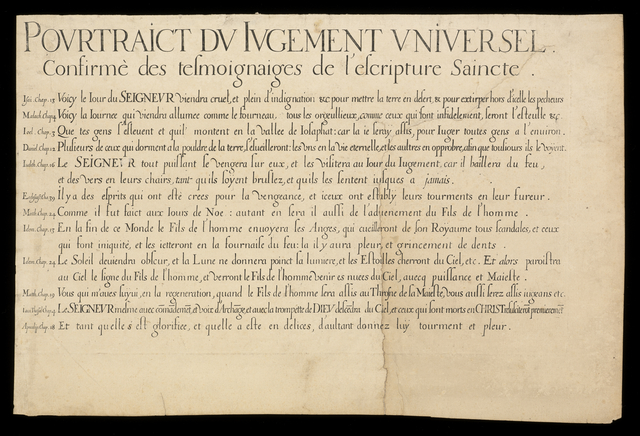 POVRTRAICT DV IVGEMENT VNIVERSEL.
Confirmè des tesmoignaiges de l'escripture Saincte.
Isai. Chap. 13 Voicy le Iour du SEIGNEVR viendra cruel, et plein d'indignation &c pour mettre la terre en desert, & pour extirper hors d'icelle les pecheurs
Malach. Chap. 4 Voicy la Iournee qui viendra allumee comme le fourneau, tous les orgueillieux, comme ceux qui font infidelement, seront l'esteulle &c.
Ioel. Chap. 3 Que tes gens s'esleuent et qu'il montent en la vallee de Iosaphat: car ia ie seray assis, pour Iuger toutes gens a l'environ.
Daniel. Chap. 12 Plusieurs de ceux qui dorment a la pouldre de la terre, s'esueilleront: les vns en la vie eternelle, et les aultres en opprobre, afin que tousiours ils le voyent.
Iudith. Chap. 16 Le SEIGNEVR tout puissant se vengera sur eux, et les visitera au Iour du Iugement, car il baillera du feu,
et des vers en leurs chairs, tant qu'ils soyent bruslez, et quils les sentent iusques a jamais.
Ecclesiast. Cha. 39 Il y a des esprits qui ont esté crees pour la vengeance, et iceux ont estably leurs tourments en leur fureur.
Math. Chap. 24 Comme il fut faict aux Iours de Noe: autant en sera il aussi de l'aduenement du Fils de l'homme.
Idem. Chap. 13 En la fin de ce Monde le Fils de l'homme enuoyera ses Anges, qui cueilleront de son Royaume tous scandales, et ceux
qui font iniquité, et les ietteront en la fournaise du feu: la il y aura pleur, et grincement de dents.
Idem. Chap. 24 Le Soleil deuiendra obscur, et la Lune ne donnera poinct sa lumiere, et les Estoilles cherront du Ciel, etc. Et alors paroistra
au Ciel le signe du Fils de l'homme, et verront le Fils de l'homme venir es nuces du Ciel, auecq puissance et Maiesté.
Math. Chap. 19 Vous qui m'aues suyui, en la regeneration, quand le Fils de l'homme sera assis au Throsne de sa Maiesté, vous aussi serez assis iugeans etc
Chap. 4 Le SEIGNEVR mesme auec comādemēt, et voix d'Archāge, et auec la trompette de DIEV descēdra du Ciel, et ceux qui sont morts en CHRIST resusciterōt premieremēt
Apocalip. Chap. 18 Et tant quelle s est glorifiee, et quelle a este en delices, d'aultant donnez luy tourment et pleur.